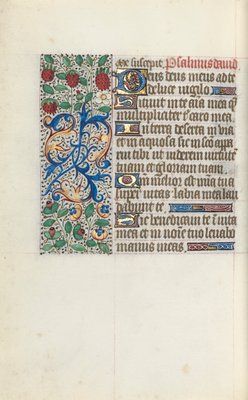 me suscepit. Psalmus david
Deus deus meus ad te
de luce vigilo
Sitivit in te anima mea q
multipliciter t caro mea
In terra deserta in via
et in aquosa sic in sco appa
rui tibi ut viderem virtute
tuam et gloriam tuam
Qm melior est mia tua
super vitas labia mea lau
dabunt te
Sic benedicam te i vita
mea et in noie tuo levabo
manus meas